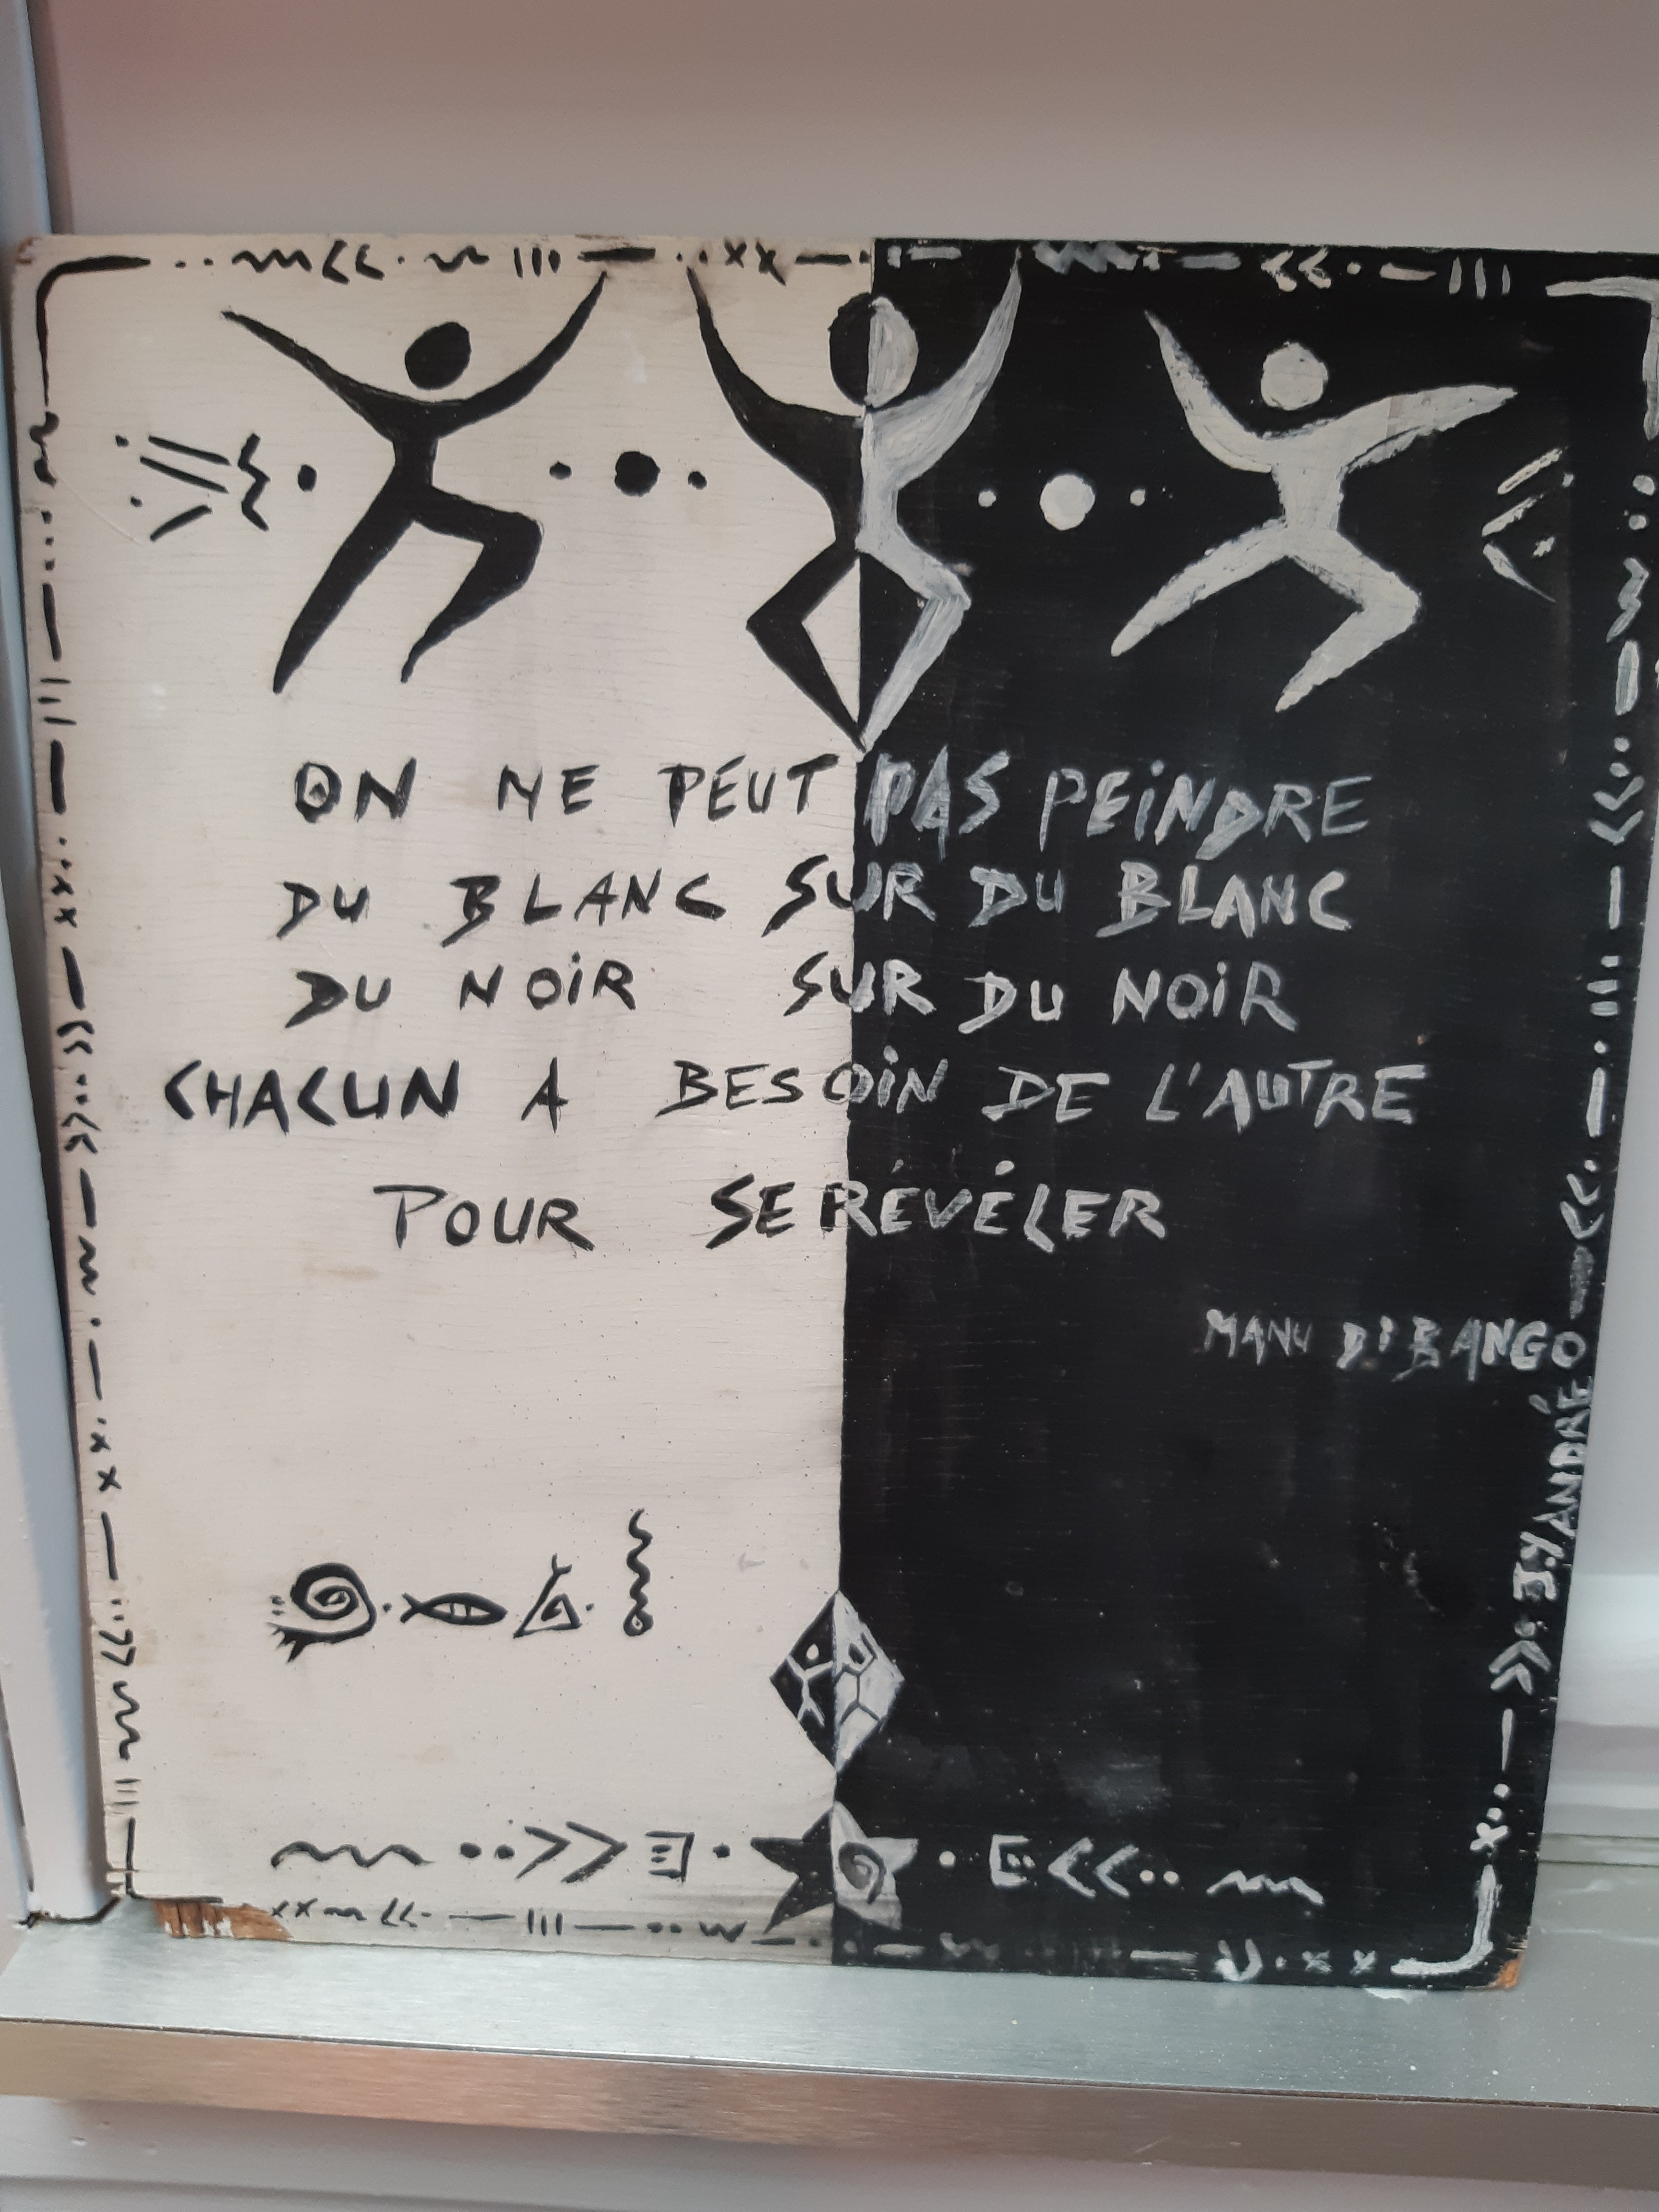 ON NE PEUT PAS PEINDRE
DU BLANC SUR DU BLANC
DU NOIR SUR DU NOIR
CHACUN A BESOIN DE L'AUTRE
POUR SE RÉVÉLER
MANU DIBANGO
J.Y ANDRÉ